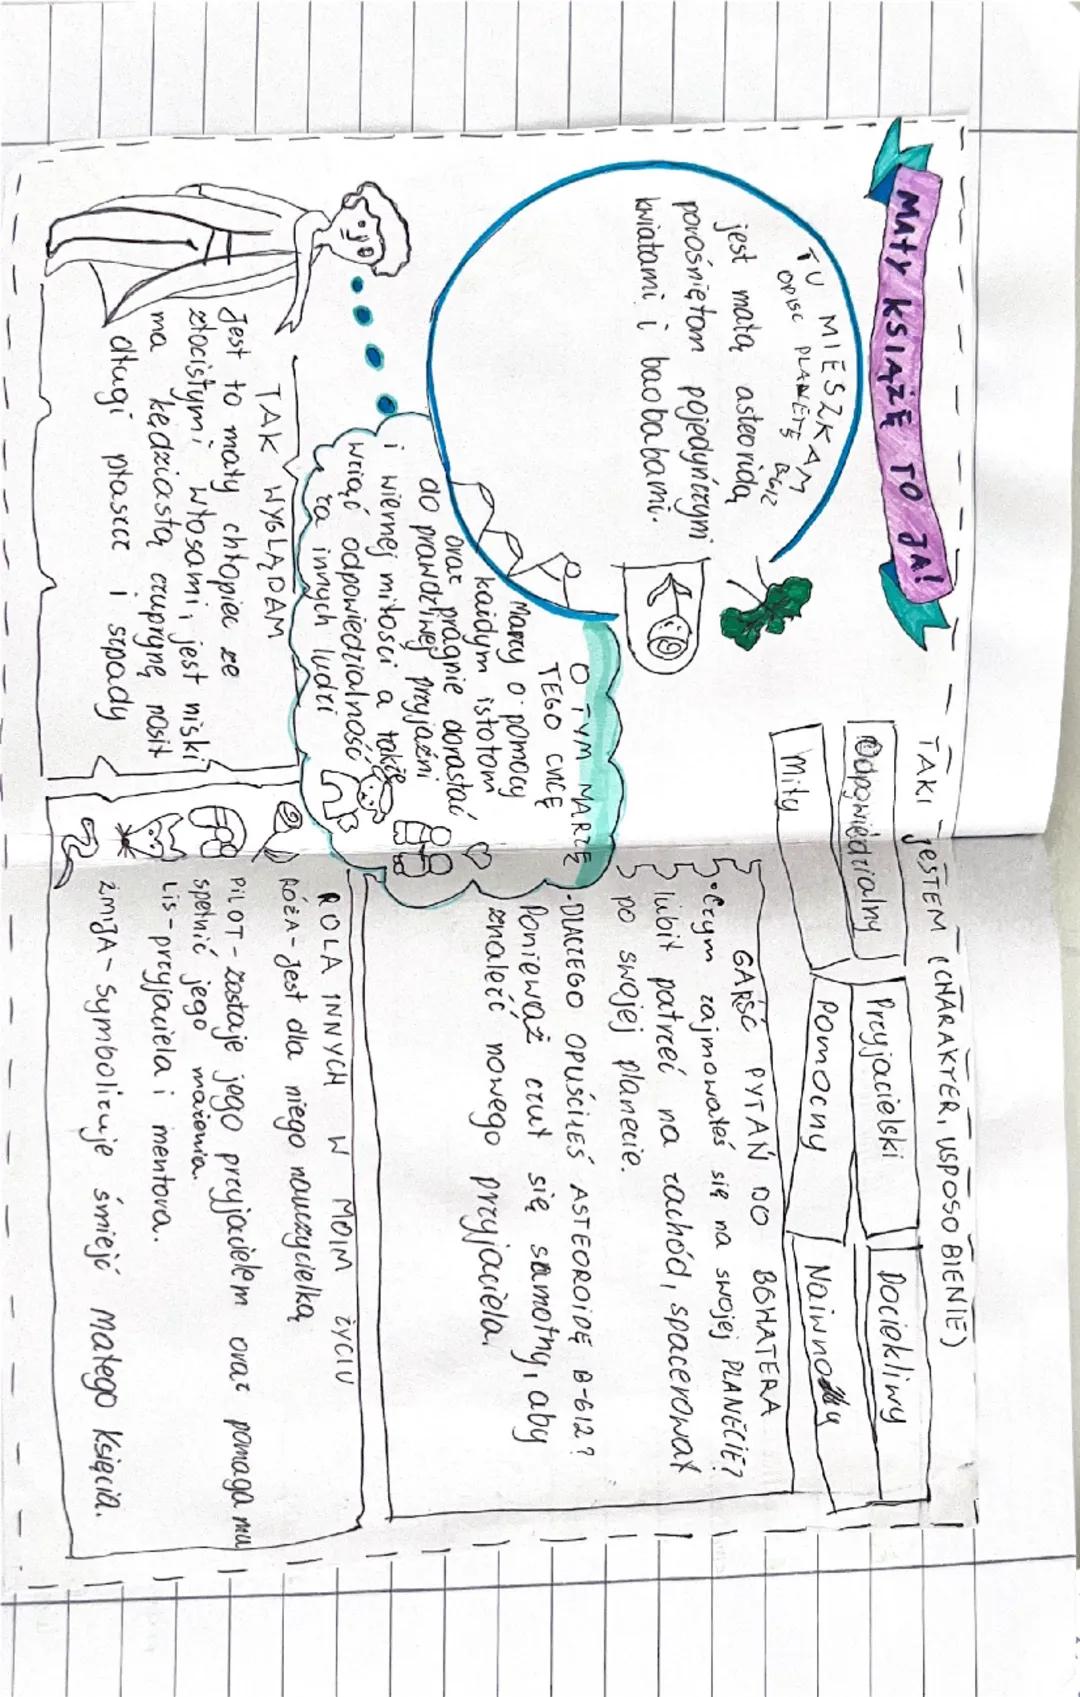 MAŁY KSIĄŻĘ TO JA!
TU MIESZKAM
OPISC PLANETĘ B612
jest małą asteoridą
porośniętom pojedyńczymi
kwiatami i baobabami.
O TYM MARZĘ
TEGO CHCĘ
Marzy o pomocy
każdym istotom
oraz pragnie dorastać
do prawdziwej przyjaźni
i wiernej miłości a także
wziąć odpowiedzialność
za innych ludzi
TAK WYGLĄDAM
Jest to mały chłopiec ze
złocistymi włosami, jest niski
ma kędziastą czuprynę nosił
długi płaszcz i szpady
TAKI JESTEM (CHARAKTER, USPOSOBIENIE)
Odpowiedzialny
Przyjacielski
Dociekliwy
Miły
Pomocny
GARŚĆ PYTAŃ DO BOHATERA
• Czym zajmowałeś się na swojej PLANECIE?
lubił patrzeć na zachód, spacerował
po swojej planecie.
• DLACZEGO OPUŚCIŁEŚ ASTEOROIDĘ B-612?
Ponieważ czuł się samotny, aby
znaleźć nowego przyjaciela.
ROLA INNYCH W MOIM ŻYCIU
RÓŻA - Jest dla niego nauczycielką
PILOT - Zostaje jego przyjacielem oraz pomaga mu
spełnić jego marzenia.
LIS - przyjaciela i mentora.
ŻMIJA - Symbolizuje śmiejć Małego Księcia.